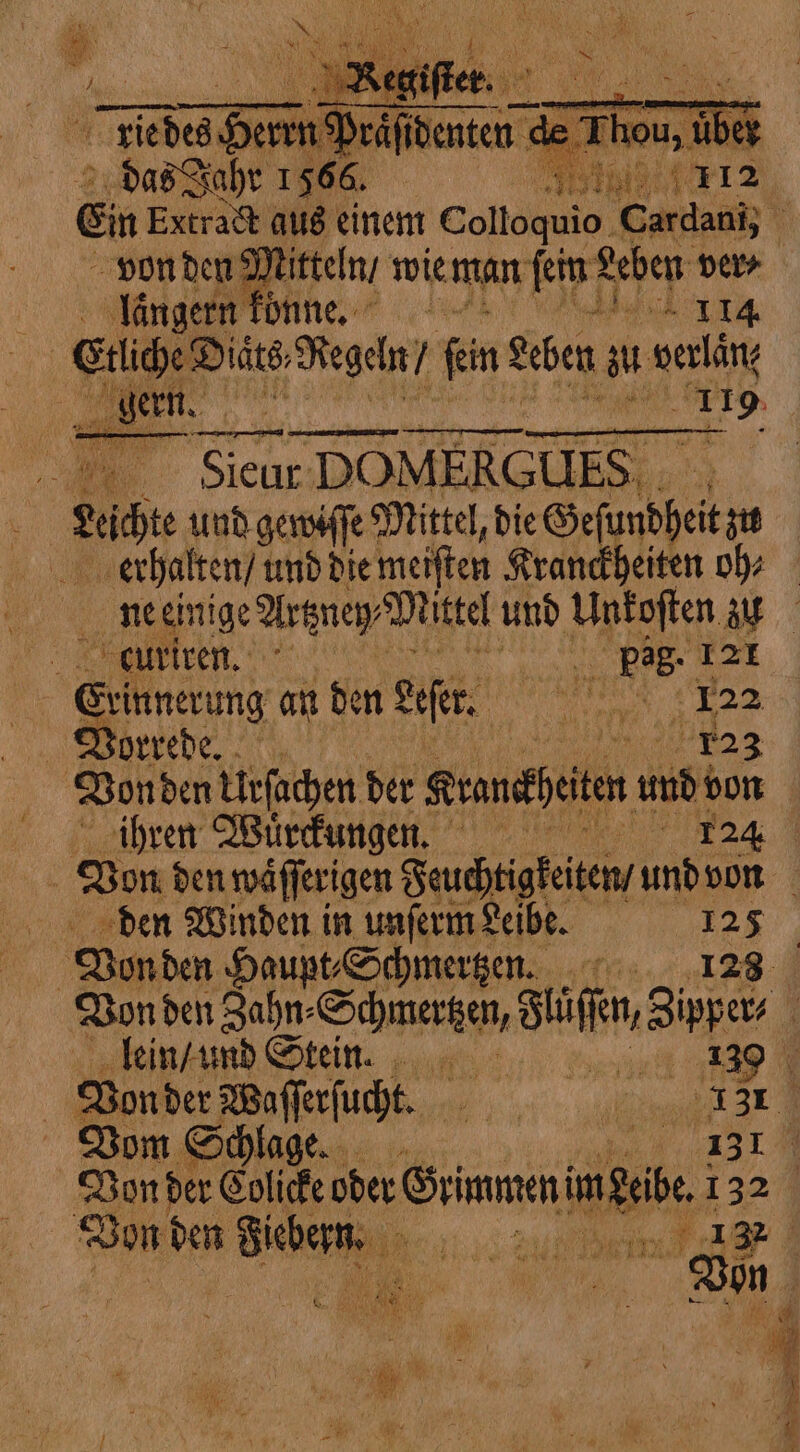 Regiſter.
rie des Herrn Præſidenten de Thou, uͤber
das Jahr 1566. 112
Ein Extract aus einem Colloquio Cardani,
von den Mitteln/ wie man ſein Leben ver⸗
laͤngern koͤnne. 114
Etliche Diaͤts⸗Regeln/ ſein Leben zu verlaͤn⸗
gern. 119
Sieur DOMERGUES
Leichte und gewiſſe Mittel, die Geſundheit zu
erhalten/ und die meiſten Kranckheiten oh⸗
ne einige Artzney⸗Mittel und Unkoſten zu
curiren. pag. 121
Erinnerung an den Leſer. 122
Vorrede. 123
Von den Urſachen der Kranckheiten und von
ihren Wuͤrckungen. 124
Von den waͤſſerigen Feuchtigkeiten/ und von
den Winden in unſerm Leibe. 125
Von den Haupt⸗Schmertzen. 128
Von den Zahn⸗Schmertzen, Fluͤſſen, Zipper⸗
lein/ und Stein. 130
Von der Waſſerſucht. 131
Vom Schlage. 131
Von der Colicke oder Grimmen im Leibe. 132
Von den Fiebern. 132
Von